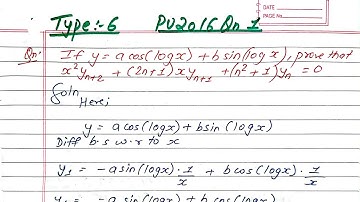 DATE
PAGE No.
Type:- 6 PU2016 Qn 1
Qn: If y = a cos(logx) + b sin(log x), prove that
x²yₙ₊₂ + (2n+1) x yₙ₊₁ + (n²+1)yₙ = 0
Soln
Here;
y = a cos(logx) + b sin (logx)
Diff b.s w.r to x
y₁ = -a sin(logx) · 1/x + b cos(logx) · 1/x